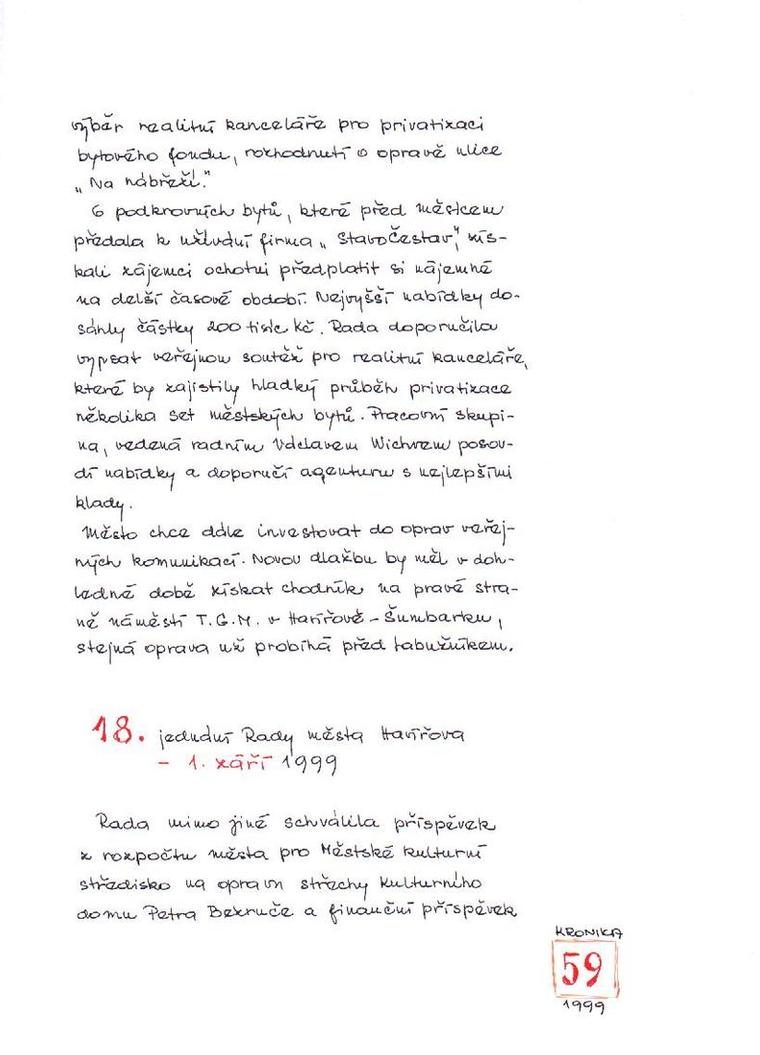 výběr realitní kanceláře pro privatizaci
bytového fondu, rozhodnutí o opravě ulice
„Na nábřeží."
6 podkrovních bytů, které před měsícem
předala k užívání firma „StavoČestav", zís-
kali zájemci ochotni předplatit si nájemné
na delší časové období. Nejvyšší nabídky do-
sáhly částky 200 tisíc kč. Rada doporučila
vypsat veřejnou soutěž pro realitní kanceláře,
které by zajistily hladký průběh privatizace
několika set městských bytů. Pracovní skupi-
na, vedená radním Václavem Wichrem posou-
dí nabídky a doporučí agenturu s nejlepšími
klady.
Město chce dále investovat do oprav veřej-
ných komunikací. Novou dlažbu by měl v doh-
ledné době získat chodník na pravé stra-
ně náměstí T.G.M. v Havířově - Šumbarku,
stejná oprava už probíhá před Labužníkem.
18. jednání Rady města Havířova
- 1. září 1999
Rada mimo jiné schválila příspěvek
z rozpočtu města pro Městské kulturní
středisko na opravu střechy Kulturního
domu Petra Bezruče a finanční příspěvek
KRONIKA
59
1999